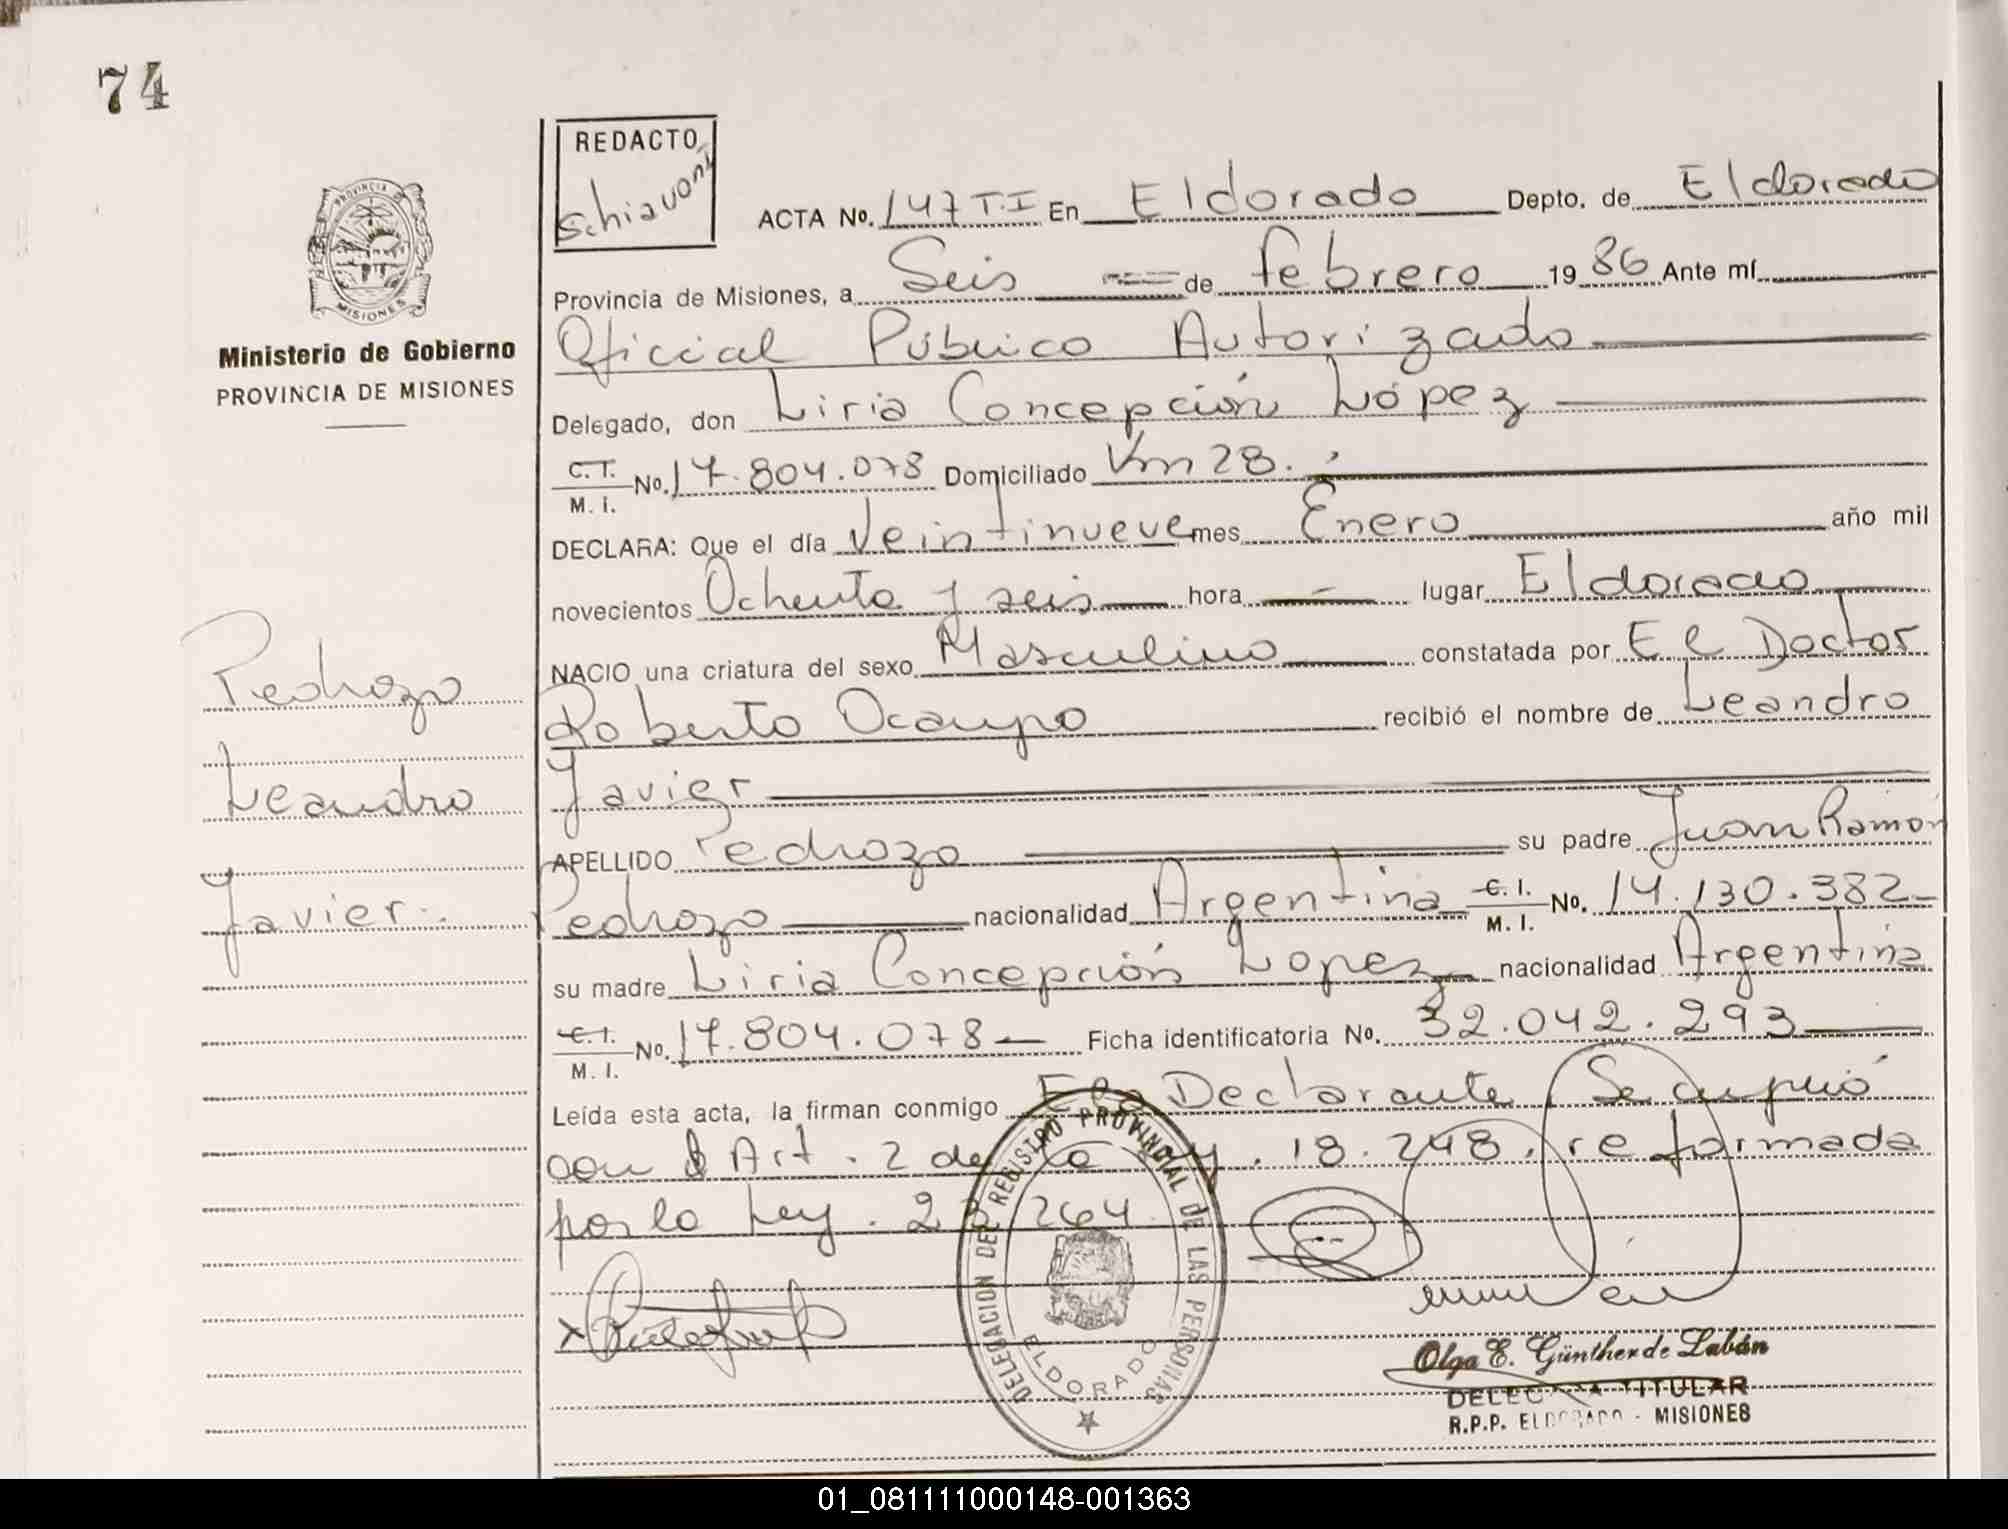 74
REDACTO
Schiavoni
PROVINCIA DE
MISIONES
Ministerio de Gobierno
PROVINCIA DE MISIONES
ACTA No. 147 T.I En Eldorado Depto. de Eldorado
Provincia de Misiones, a Seis de febrero 1986 Ante mí
Oficial Público Autorizado
Delegado, don Liria Concepción López
C.I. M. I. No. 17.804.078 Domiciliado Km 28.
DECLARA: Que el día Veintinueve mes Enero año mil
novecientos Ochenta y seis hora — lugar Eldorado
NACIO una criatura del sexo Masculino constatada por El Doctor
Roberto Ocampo recibió el nombre de Leandro
Javier
APELLIDO Pedrozo su padre Juan Ramón
Pedrozo nacionalidad Argentina C. I. M. I. No. 14.130.382
su madre Liria Concepción Lopez nacionalidad Argentina
C.I. M. I. No. 17.804.078 Ficha identificatoria No. 32.042.293
Leída esta acta, la firman conmigo El Declarante Se cumplió
con el Art. 2 de la Ley. 18.248. reformada
por la Ley. 23.264
Pedrozo
Leandro
Javier
DELEGACION DEL REGISTRO PROVINCIAL DE LAS PERSONAS
ELDORADO
Olga E. Günther de Labán
DELEGADA TITULAR
R.P.P. ELDORADO - MISIONES
01_081111000148-001363